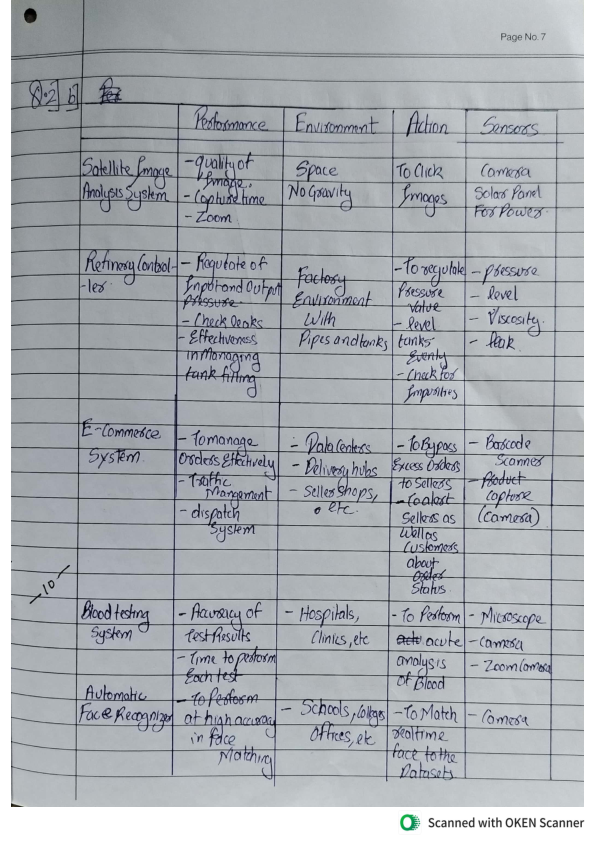 Page No. 7
Q.2] b]
Performance Environment Action Sensors
Satellite Image Analysis System
- quality of Image,
- Capture time
- Zoom
Space
No Gravity
To Click
Images
Camera
Solar Panel
For Power.
Refinery Control-
-ler.
- Regulate of
Input and Output
Pressure.
- Check leaks
- Effectiveness
in Managing
tank filling
Factory
Environment
With
Pipes and tanks
- To regulate
Pressure
Value
- level
tanks
Evenly
- Check for
Impurities
- pressure
- level
- Viscosity.
- leak.
E-Commerce
System
- To manage
Orders Effectively
- Traffic
Mangement
- dispatch
System
- Data Centers
- Delivery hubs
- Seller shops,
etc.
- To Bypass
Excess Orders
to Sellers
- To alert
Sellers as
well as
Customers
about
Order
Status.
- Barcode
Scanner
- Product
Capture
(Camera)
-10-
Blood testing
System
- Accuracy of
Test Results
- Time to perform
Each test
- Hospitals,
Clinics, etc
- To Perform
acute
analysis
of Blood
- Microscope
- Camera
- Zoom Camera
Automatic
Face Recognizer
- To Perform
at high accuracy
in face
Matching
- Schools, Colleges
Offices, etc
- To Match
realtime
face to the
Datasets
- Camera
Scanned with OKEN Scanner